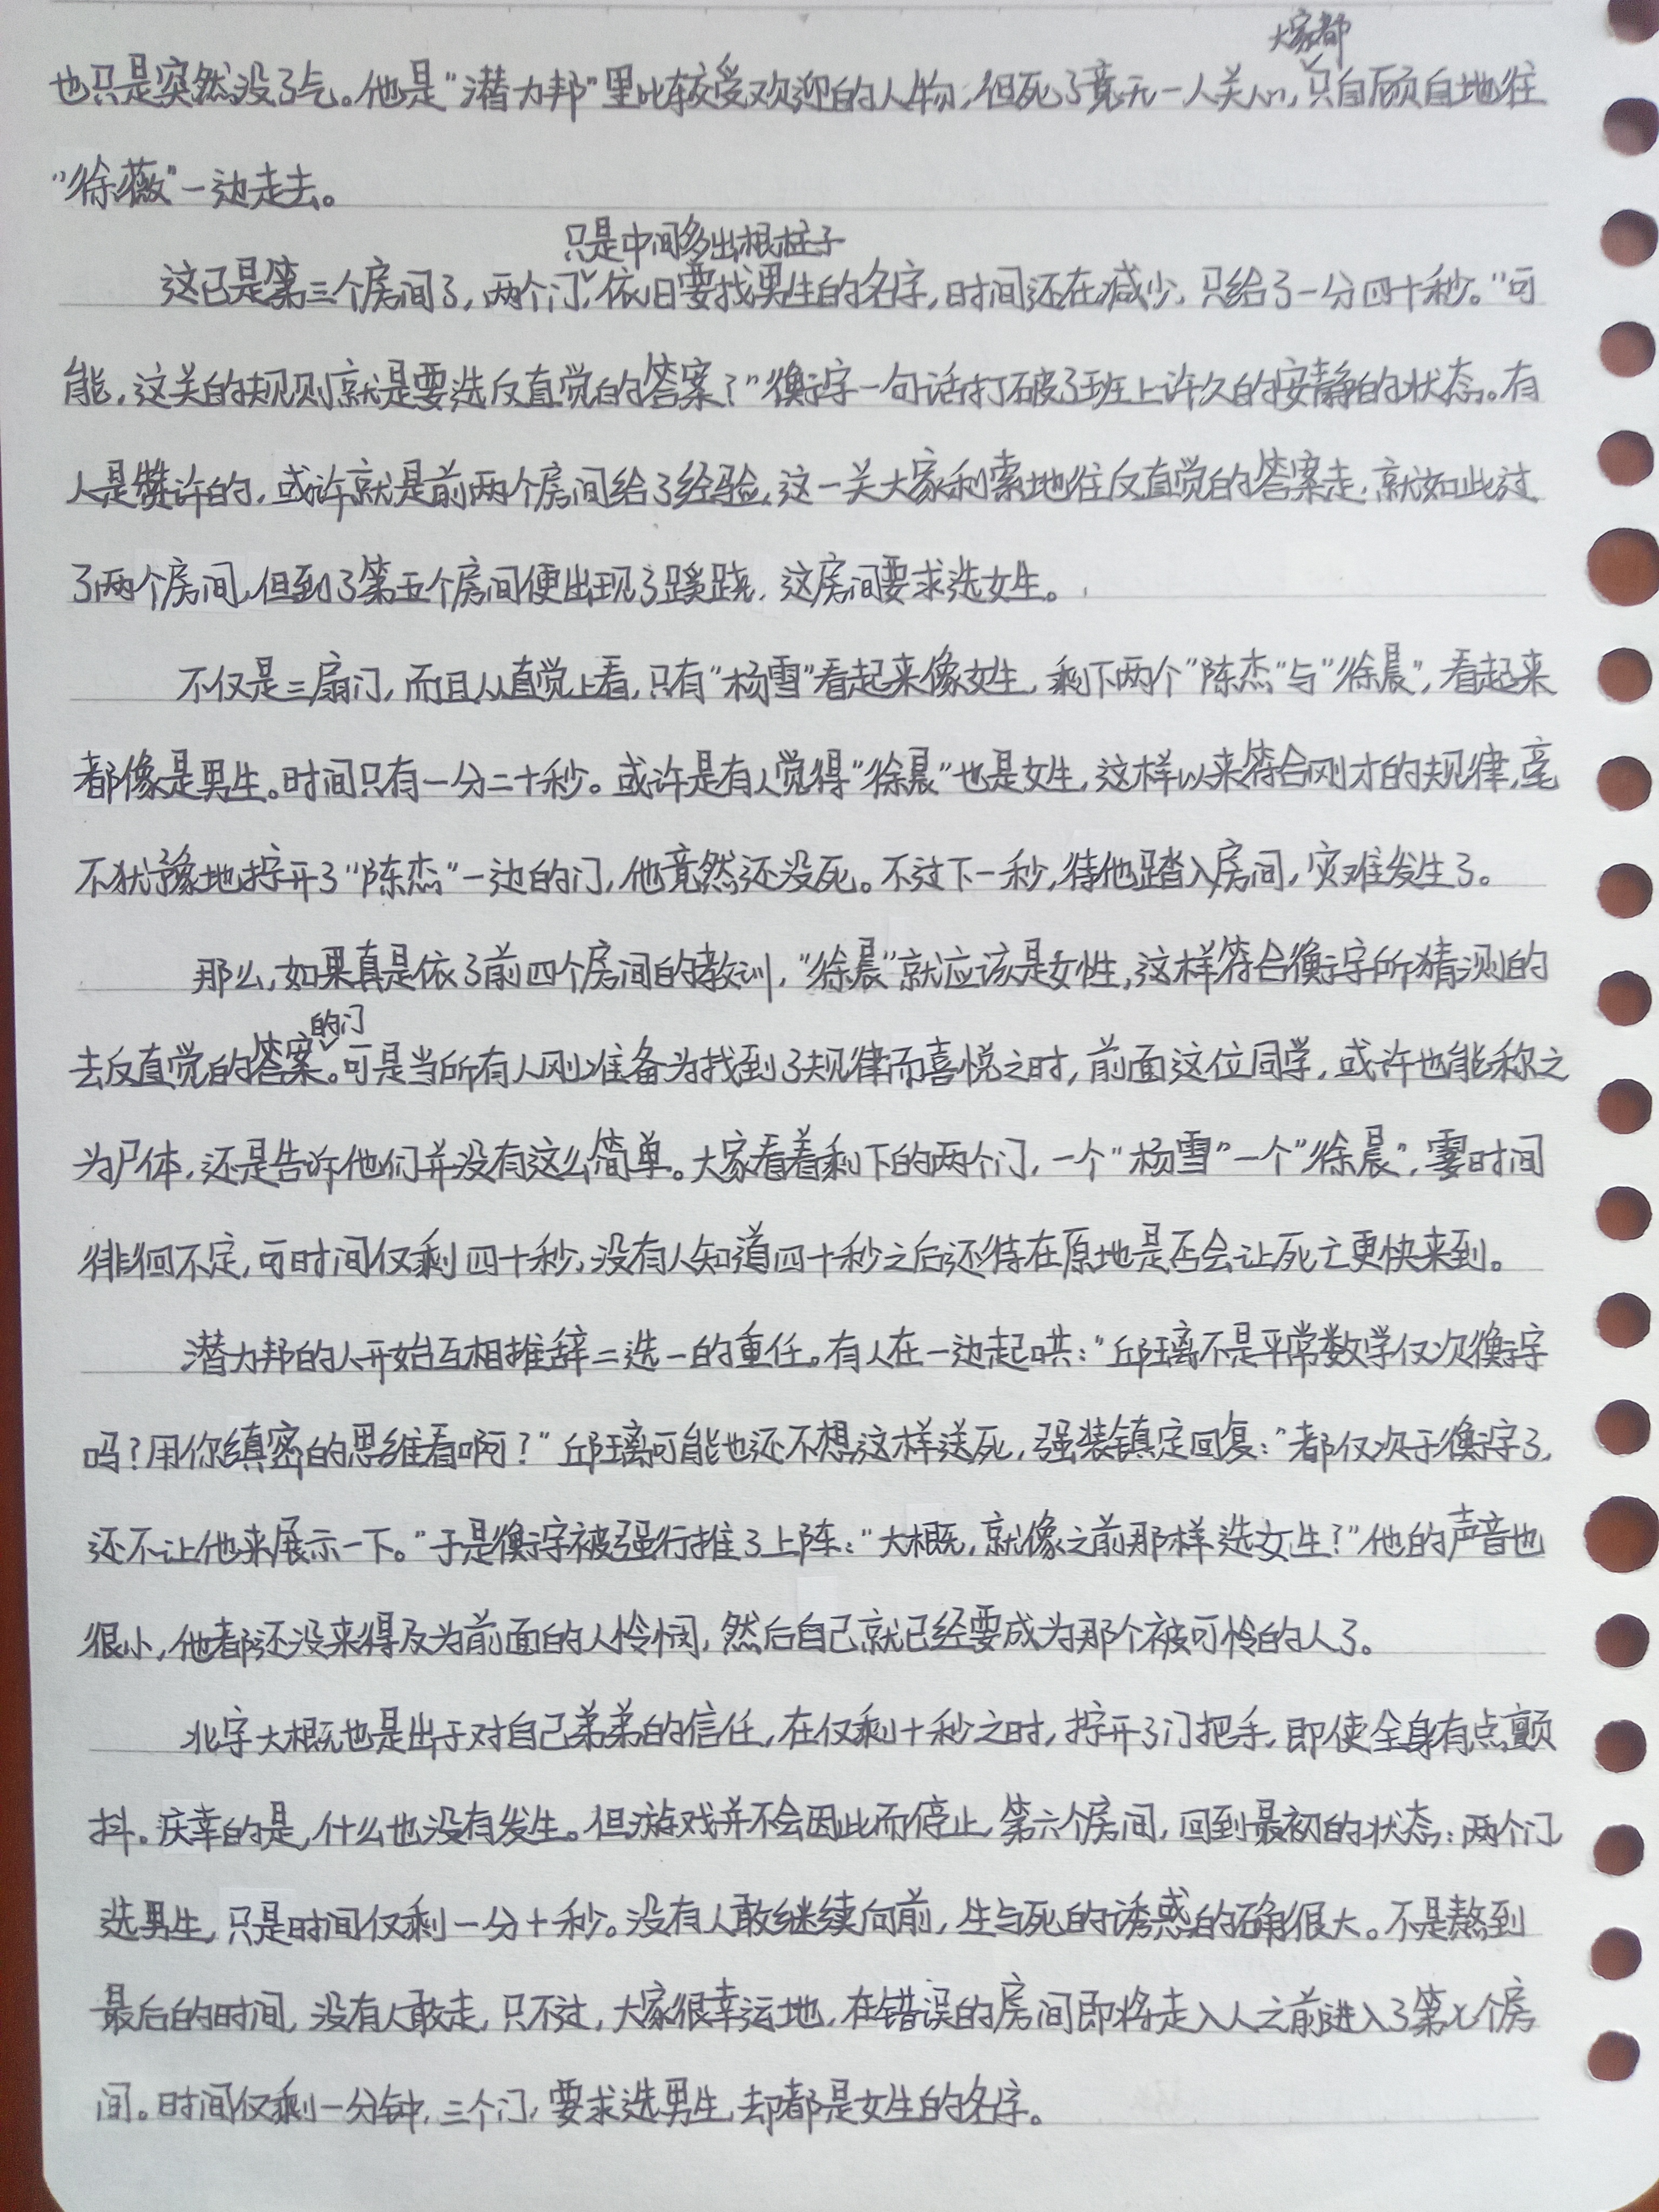 大家都
也只是突然没了气。他是“潜力邦”里比较受欢迎的人物，但死了竟无一人关心，只自顾自地往
“徐薇”一边走去。
只是中间多出根柱子
这已是第三个房间了，两个门，依旧要找男生的名字，时间还在减少，只给了一分四十秒。“可
能，这关的规则就是要选反直觉的答案？”衡宇一句话打破了班上许久的安静的状态。有
人是赞许的，或许就是前两个房间给了经验，这一关大家利索地往反直觉的答案走，就如此过
了两个房间，但到了第五个房间便出现了蹊跷，这房间要求选女生。
不仅是三扇门，而且从直觉上看，只有“杨雪”看起来像女生，剩下两个“陈杰”与“徐晨”，看起来
都像是男生。时间只有一分二十秒。或许是有人觉得“徐晨”也是女生，这样以来符合刚才的规律，毫
不犹豫地拧开了“陈杰”一边的门，他竟然还没死。不过下一秒，待他踏入房间，灾难发生了。
那么，如果真是依了前四个房间的教训，“徐晨”就应该是女性，这样符合衡宇所猜测的
的门
去反直觉的答案。可是当所有人刚准备为找到了规律而喜悦之时，前面这位同学，或许也能称之
为尸体，还是告诉他们并没有这么简单。大家看着剩下的两个门，一个“杨雪”一个“徐晨”，霎时间
徘徊不定，可时间仅剩四十秒，没有人知道四十秒之后还待在原地是否会让死亡更快来到。
潜力邦的人开始互相推辞二选一的重任。有人在一边起哄：“邱璃不是平常数学仅次衡宇
吗？用你缜密的思维看啊？”邱璃可能也还不想这样送死，强装镇定回复：“都仅次于衡宇了，
还不让他来展示一下。”于是衡宇被强行推了上阵：“大概，就像之前那样选女生？”他的声音也
很小，他都还没来得及为前面的人怜悯，然后自己就已经要成为那个被可怜的人了。
北宇大概也是出于对自己弟弟的信任，在仅剩十秒之时，拧开了门把手，即使全身有点颤
抖。庆幸的是，什么也没有发生。但游戏并不会因此而停止，第六个房间，回到最初的状态：两个门，
选男生，只是时间仅剩一分十秒。没有人敢继续向前，生与死的诱惑的确很大。不是熬到
最后的时间，没有人敢走，只不过，大家很幸运地，在错误的房间即将走入人之前进入了第七个房
间。时间仅剩一分钟，三个门，要求选男生，却都是女生的名字。